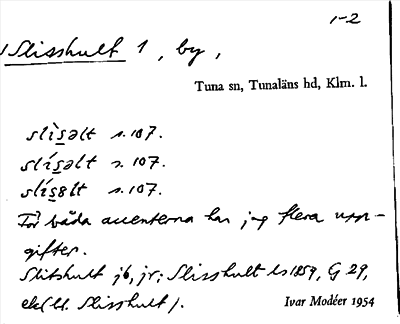 1-2
Slisshult 1, by,
Tuna sn, Tunaläns hd, Klm. l.
slìsəlt s. 107.
slísəlt s. 107.
slísɵlt s. 107.
För båda accenterna har jag flera upp-
gifter.
Slitshult jb, jr; Slisshult ls 1859, G 29,
ek (bl. Slisshult).
Ivar Modéer 1954